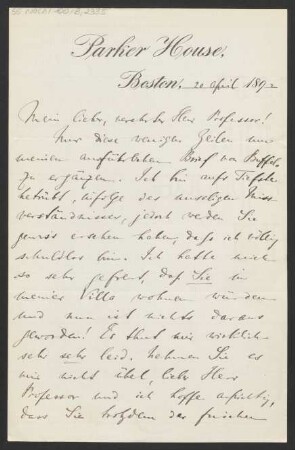 Parker House.
Boston. 20 April 1892
Mein lieber, verehrter Herr Professor!
Nur diese wenigen Zeilen um
meinen ausführlichen Brief von Buffalo
zu ergänzen. Ich bin aufs Tiefste
betrübt, infolge des unseligen Miss-
verständnisses, jedoch werden Sie
gewiss ersehen haben, dass ich völlig
schuldlos bin. Ich hatte mich
so sehr gefreut, dass Sie in
meiner Villa wohnen würden
und nun ist nichts daraus
geworden! Es thut mir wirklich
sehr sehr leid. Nehmen Sie es
mir nicht übel, lieber Herr
Professor und ich hoffe aufrichtig,
dass Sie trotzdem der frischen